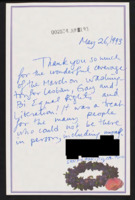 May 26, 1993
Thank you so much
for the wonderful coverage
of the March on Washington
for Lesbian, Gay and
Bi Equal Rights and
Liberation. It was a treat
for the many people
who could not be there
in person, including myself